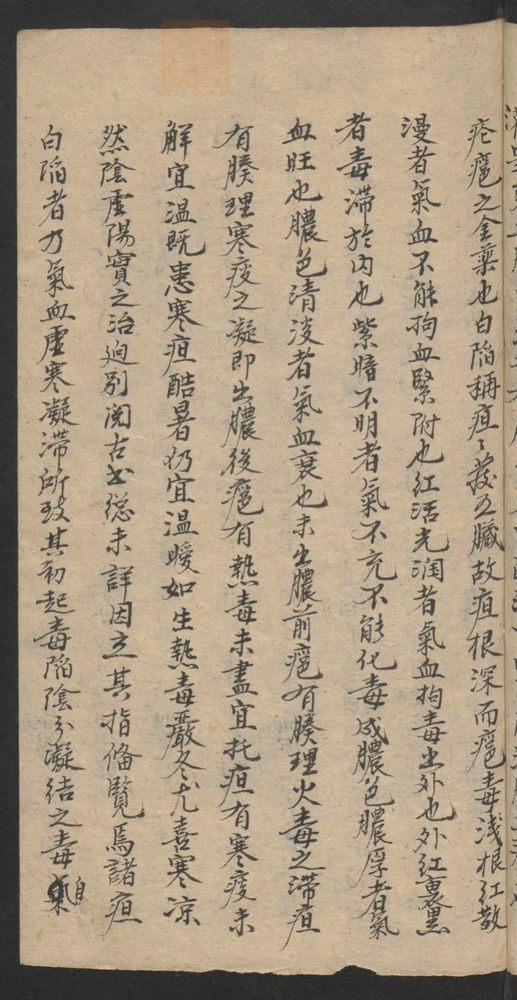 疮瘟之金藥也白陷稱疽〻發五臟故疽根深而瘟毒淺根紅散
漫者氣血不能拘血緊附也紅活光潤者氣血拘毒出外也外紅裏黑
者毒滯於内也紫暗不明者氣不充不能化毒成膿色膿厚者氣
血旺也膿色清淡者氣血衰也未出膿前瘟有腠理火毒之滯疽
有腠理寒痰之凝即出膿後瘟有熱毒未盡宜托疽有寒痰未
解宜温既患寒疽酷暑仍宜温暖如生熱毒嚴冬尤喜寒凉
然陰虛陽實之治迥别閲古书總未詳因立其指俻覧焉諸疽
白陷者乃氣血虛寒凝滯所致其初起毒陷陰分凝結之毒自